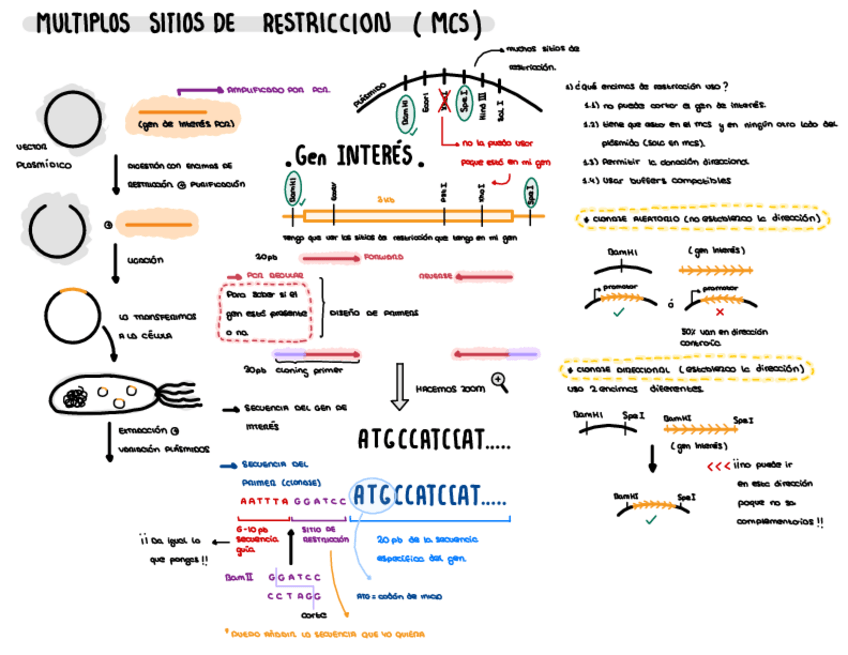 MULTIPLOS SITIOS DE RESTRICCION (MCS)
AMPLIFICADO POR PCR
(gen de interés PCR)
VECTOR
PLASMÍDICO
DIGESTIÓN CON ENZIMAS DE
RESTRICCIÓN ⊕ PURIFICACIÓN
⊕
LIGACIÓN
LO TRANSFERIMOS
A LA CÉLULA
EXTRACCIÓN ⊕
VARIACIÓN PLÁSMIDOS
muchos sitios de
restricción.
PLÁSMIDO
BamHI
EcoRI
XhoI
SpeI
Hind III
Sal I
no la puedo usar
poque está en mi gen
.Gen INTERÉS.
BamHI
EcoRV
3kb
Pst I
XhoI
SpeI
Tengo que ver los sitios de restricción que tengo en mi gen
20pb
FORWARD
PCR REGULAR
REVERSE
Para saber si el
gen está presente
o no.
DISEÑO DE PRIMERS
20pb cloning primer
HACEMOS ZOOM
SECUENCIA DEL GEN DE
INTERÉS
ATGCCATCCAT.....
SECUENCIA DEL
PRIMER (CLONASE)
AATTTA GGATCC ATGCCATCCAT.....
6-10 pb
secuencia
guía
SITIO DE
RESTRICCIÓN
20 pb de la secuencia
específica del gen.
¡¡Da igual lo
que pongas!!
BamII
GGATCC
CCTAGG
corte
ATG = codón de inicio
* PUEDO AÑADIR LA SECUENCIA QUE YO QUIERA
1) ¿Qué enzimas de restricción uso?
1.1) no puede cortar el gen de interés.
1.2) tiene que estar en el mcs y en ningún otro lado del
plásmido (solo en mcs).
1.3) Permitir la clonación direccional
1.4) Usar buffers compatibles
* CLONASE ALEATORIO (no establezco la dirección)
BamHI
(gen interés)
promotor
ó
promotor
50% van en dirección
contraria.
* CLONASE DIRECCIONAL (establezco la dirección)
uso 2 enzimas diferentes.
BamHI
SpeI
BamHI
SpeI
(gen interés)
<<< ¡¡no puede ir
en esta dirección
poque no sa
complementarios!!
BamHI
SpeI